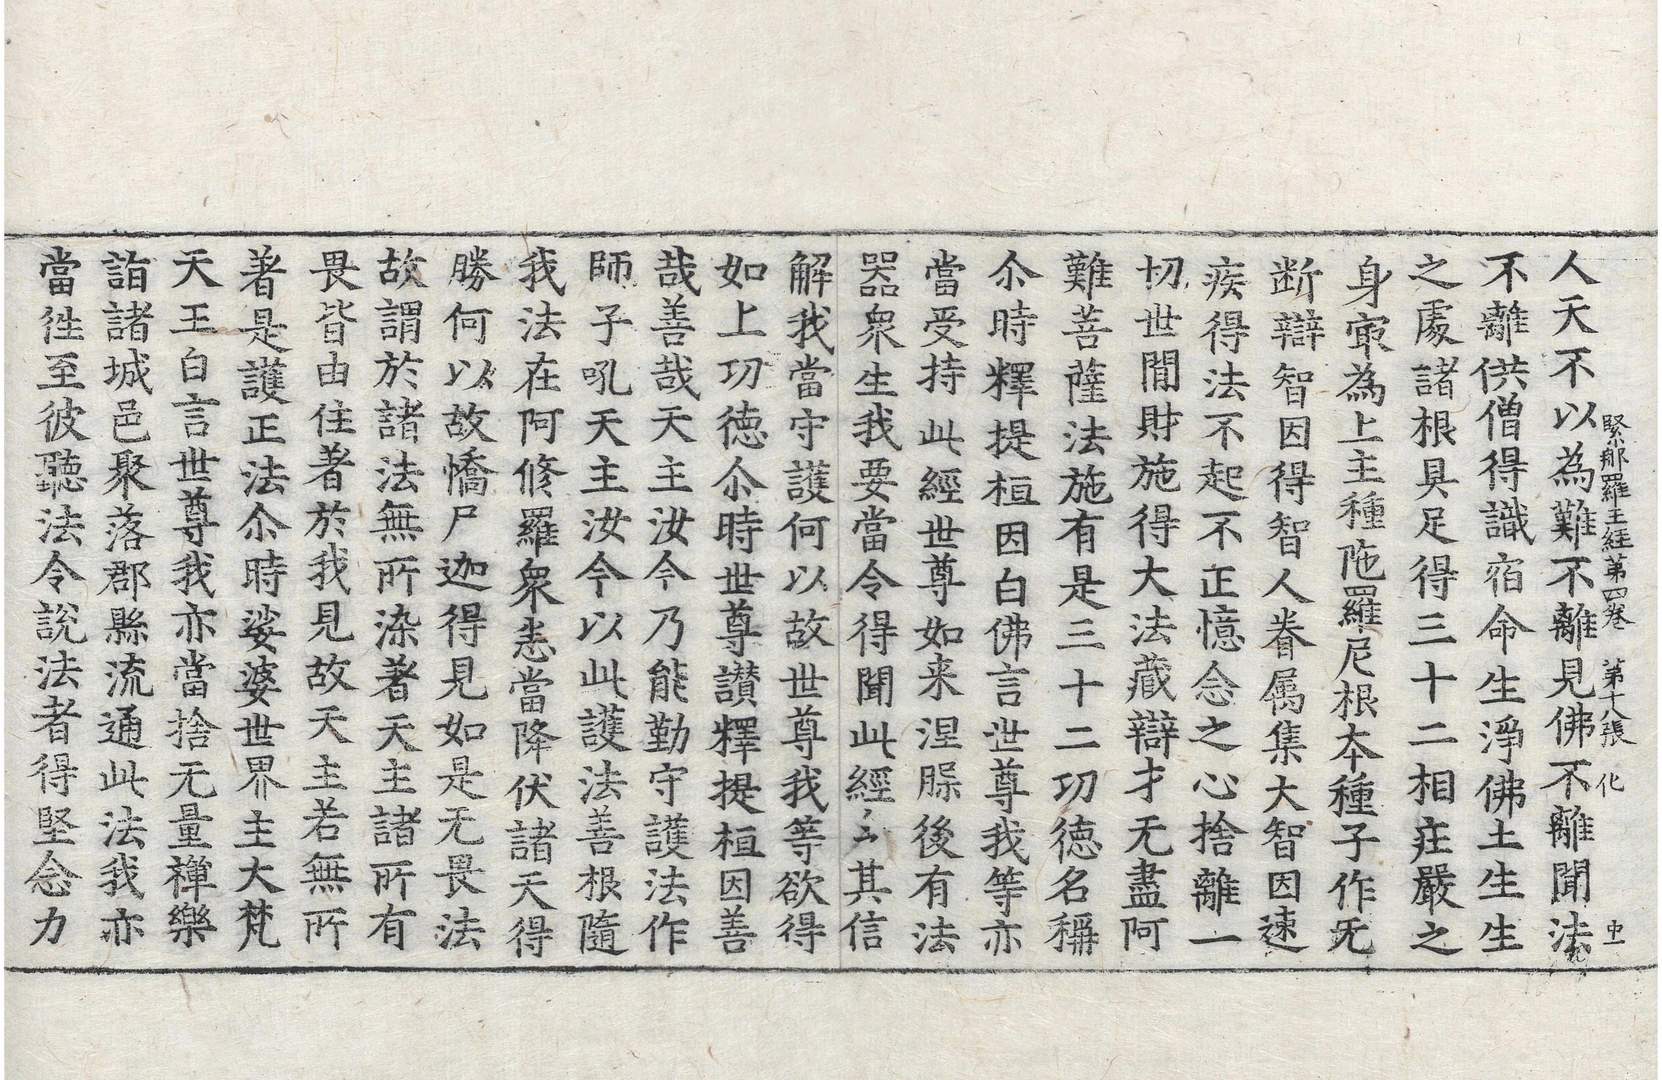 緊那羅王経第四卷　第十八張　化
人天不以為難不離見佛不離聞法
不離供僧得識宿命生淨佛土生生
之處諸根具足得三十二相莊嚴之
身㝡為上主種陁羅尼根本種子作无
断辯智因得智人眷属集大智因速
疾得法不起不正憶念之心捨離一
切世間財施得大法藏辯才无盡阿
難菩薩法施有是三十二功德名稱
尒時釋提桓因白佛言世尊我等亦
當受持此經世尊如来涅槃後有法
器衆生我要當令得聞此經令其信
解我當守護何以故世尊我等欲得
如上功德尒時世尊讃釋提桓因善
哉善哉天主汝今乃能勤守護法作
師子吼天主汝今以此護法善根隨
我法在阿修羅衆悉當降伏諸天得
勝何以故憍尸迦得見如是无畏法
故謂於諸法無所染著天主諸所有
畏皆由住著於我見故天主若無所
著是護正法尒時娑婆世界主大梵
天王白言世尊我亦當捨无量禪樂
詣諸城邑聚落郡縣流通此法我亦
當往至彼聽法令說法者得堅念力